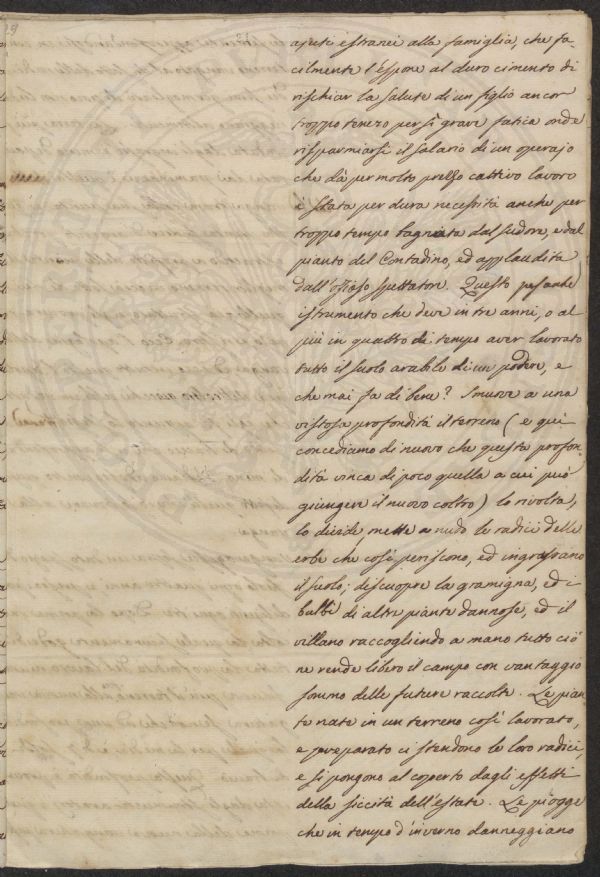 ajuti estranei alla famiglia, che fa-
cilmente l'espone al duro cimento di
rischiar la salute di un figlio ancor
troppo tenero per sì grave fatica onde
risparmiarsi il salario di un operajo
che dà per molto prezzo cattivo lavoro
è stata per dura necessità anche per
troppo tempo bagnata dal sudore, e dal
pianto del Contadino, ed applaudita
dall'ozioso spettator. Questo pesante
istrumento che deve in tre anni, o al
più in quattro di tempo aver lavorato
tutto il suolo arabile di un podere, e
che mai fa di bene? Smuove a una
vistosa profondità il terreno (e qui
concediamo di nuovo che questa profon-
dità vinca di poco quella a cui può
giungere il nuovo coltro) lo rivolta,
lo divide, mette a nudo le radici delle
erbe che così periscono, ed ingrassano
il suolo; discuopre la gramigna, ed i
bulbi di altre piante dannose, ed il
villano raccogliendo a mano tutto ciò
ne rende libero il campo con vantaggio
sommo delle future raccolte. Le pian
te nate in un terreno così lavorato,
e preparato ci stendono le loro radici,
e si pongono al coperto dagli effetti
della siccità dell'estate. Le piogge
che in tempo d'inverno danneggiano